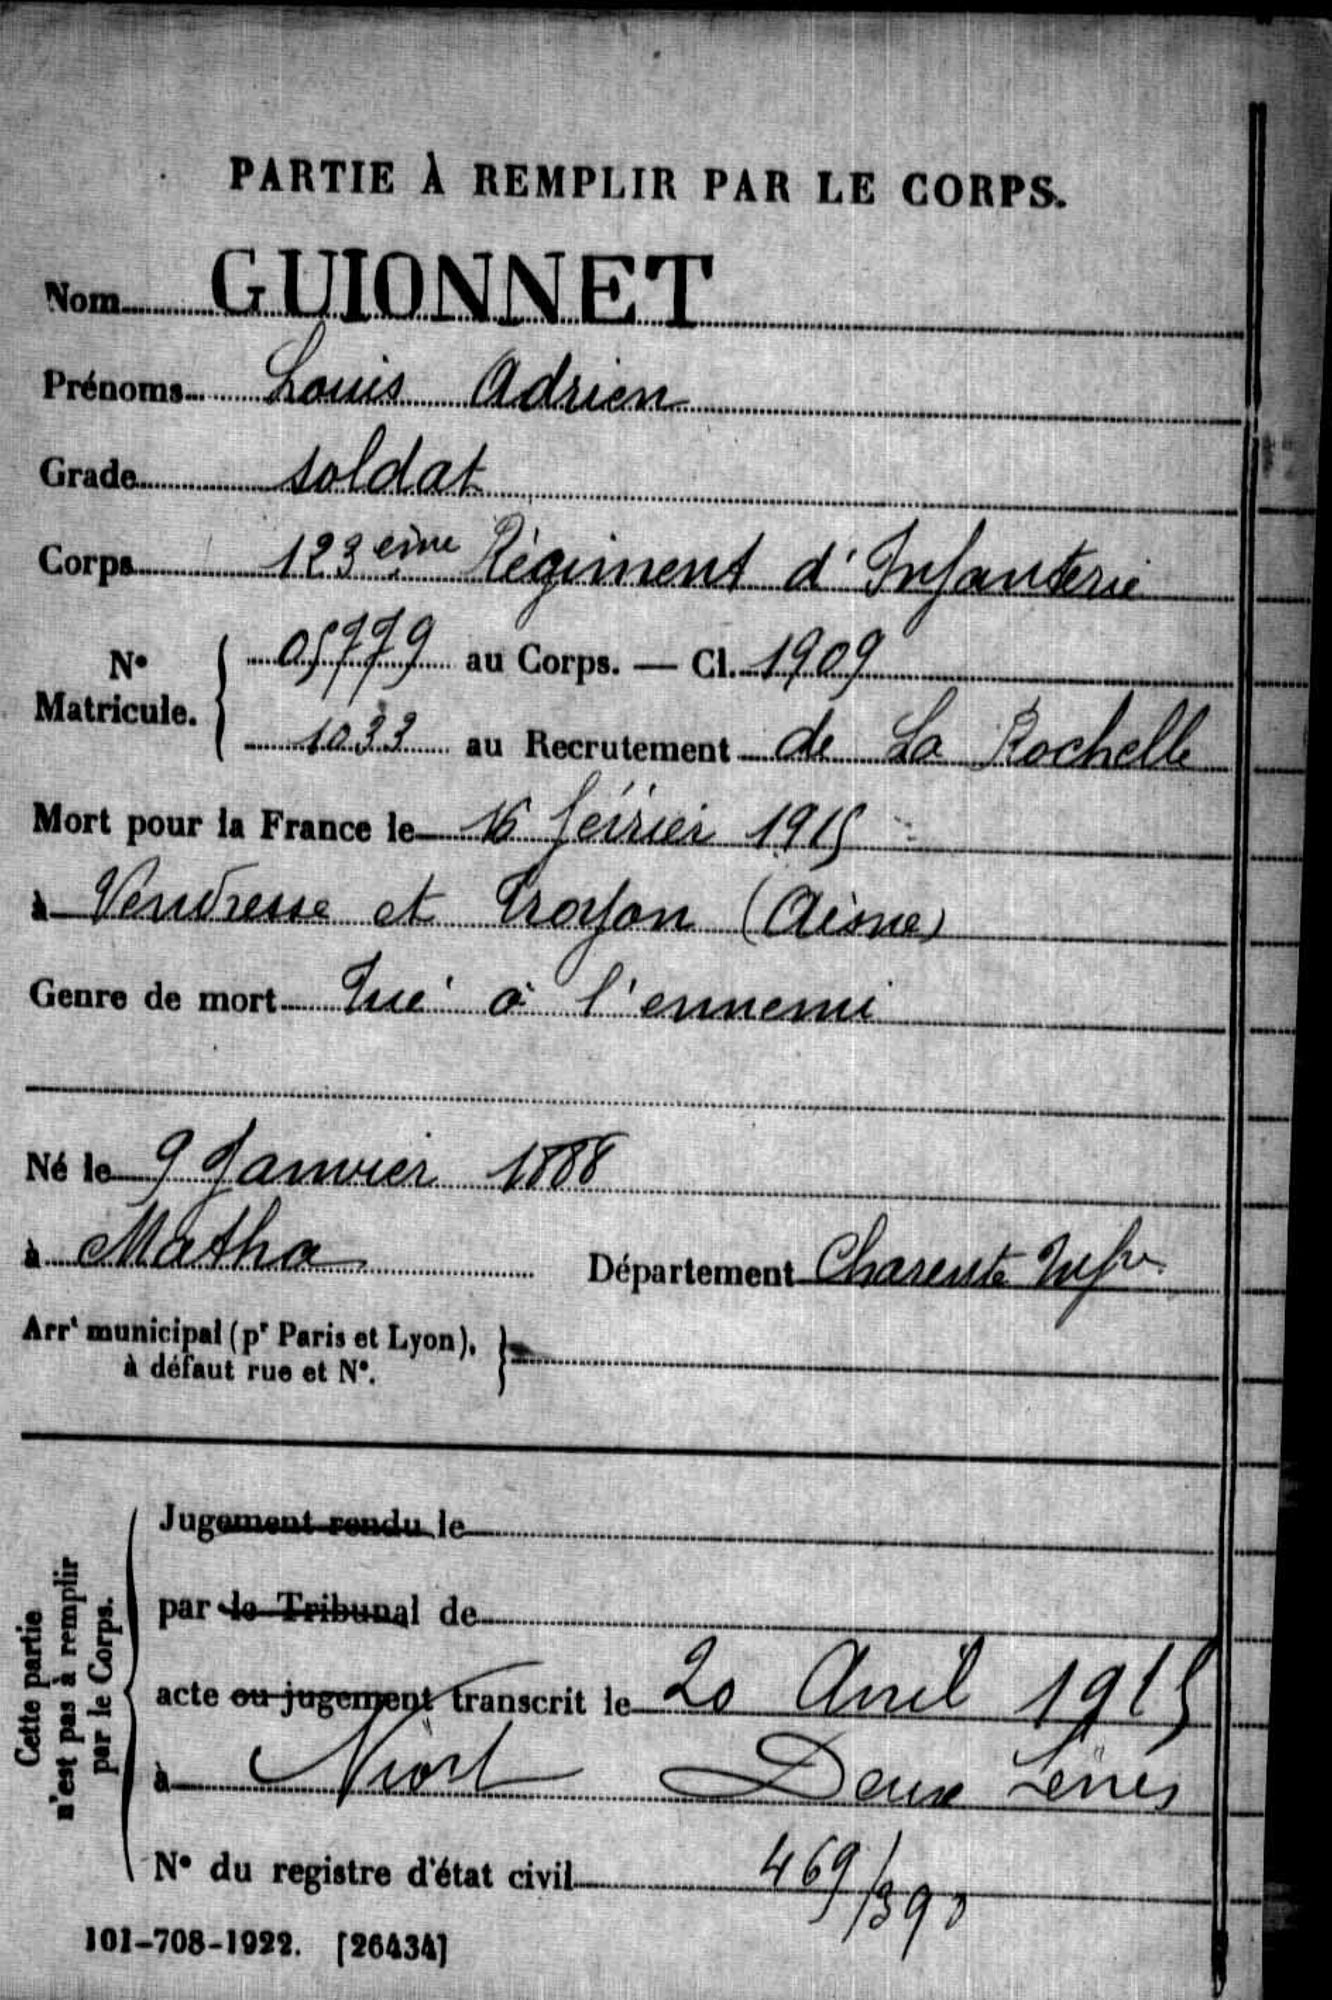 PARTIE À REMPLIR PAR LE CORPS.
Nom GUIONNET
Prénoms Louis Adrien
Grade soldat
Corps 123ème Régiment d'Infanterie
N° Matricule. { 05779 au Corps. — Cl. 1909
1033 au Recrutement de La Rochelle
Mort pour la France le 16 février 1915
à Vendresse et Troyon (Aisne)
Genre de mort Tué à l'ennemi
Né le 9 Janvier 1888
à Matha Département Charente Infre
Arrt municipal (pr Paris et Lyon), }
à défaut rue et N°.
Cette partie
n'est pas à remplir
par le Corps.
Jugement rendu le
par le Tribunal de
acte ou jugement transcrit le 20 Avril 1915
à Niort Deux Sèvres
N° du registre d'état civil 469/390
101-708-1922. [26434]